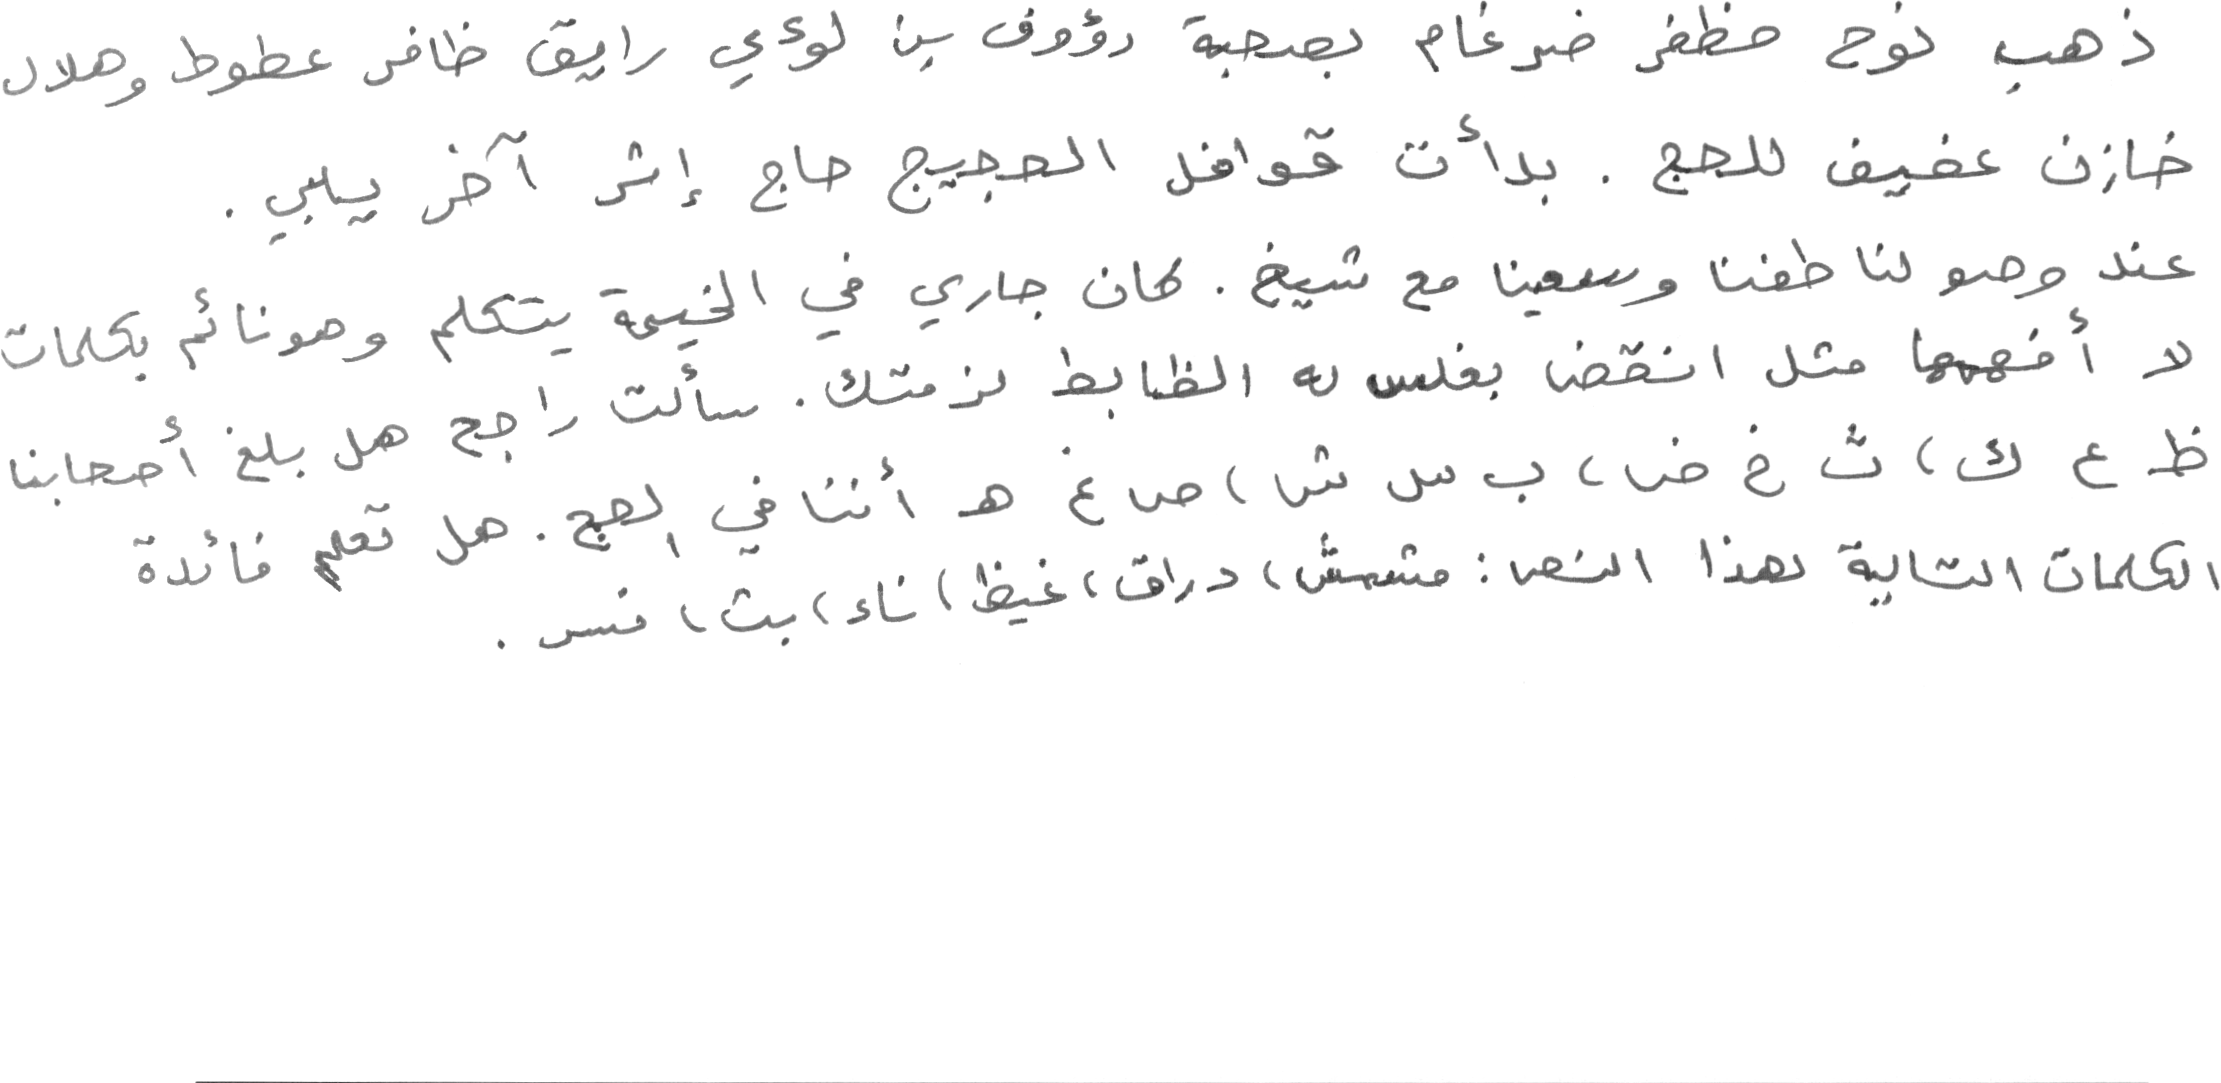 ذهب نوح مظفر ضرغام بصحبة رؤوف بن لوءي رايق ظافر عطوط وهلال
خازن عفيف للحج . بدأت قوافل الحجيج حاج إثر آخر يلبي .
عند وصولنا طفنا وسعينا مع شيخ . كان جاري في الخيمة يتكلم وهو نائم بكلمات
لا أفهمها مثل انقض بغلس له الظابط لزمتك . سألت راجح هل بلغ أصحابنا
ظ ع ك ، ث خ ض ، ب س ش ، ص غ هـ أننا في الحج . هل تعلم فائدة
الكلمات التالية لهذا النص : مشمش ، دراق ، غيظ ، ناء ، بث ، نسر .